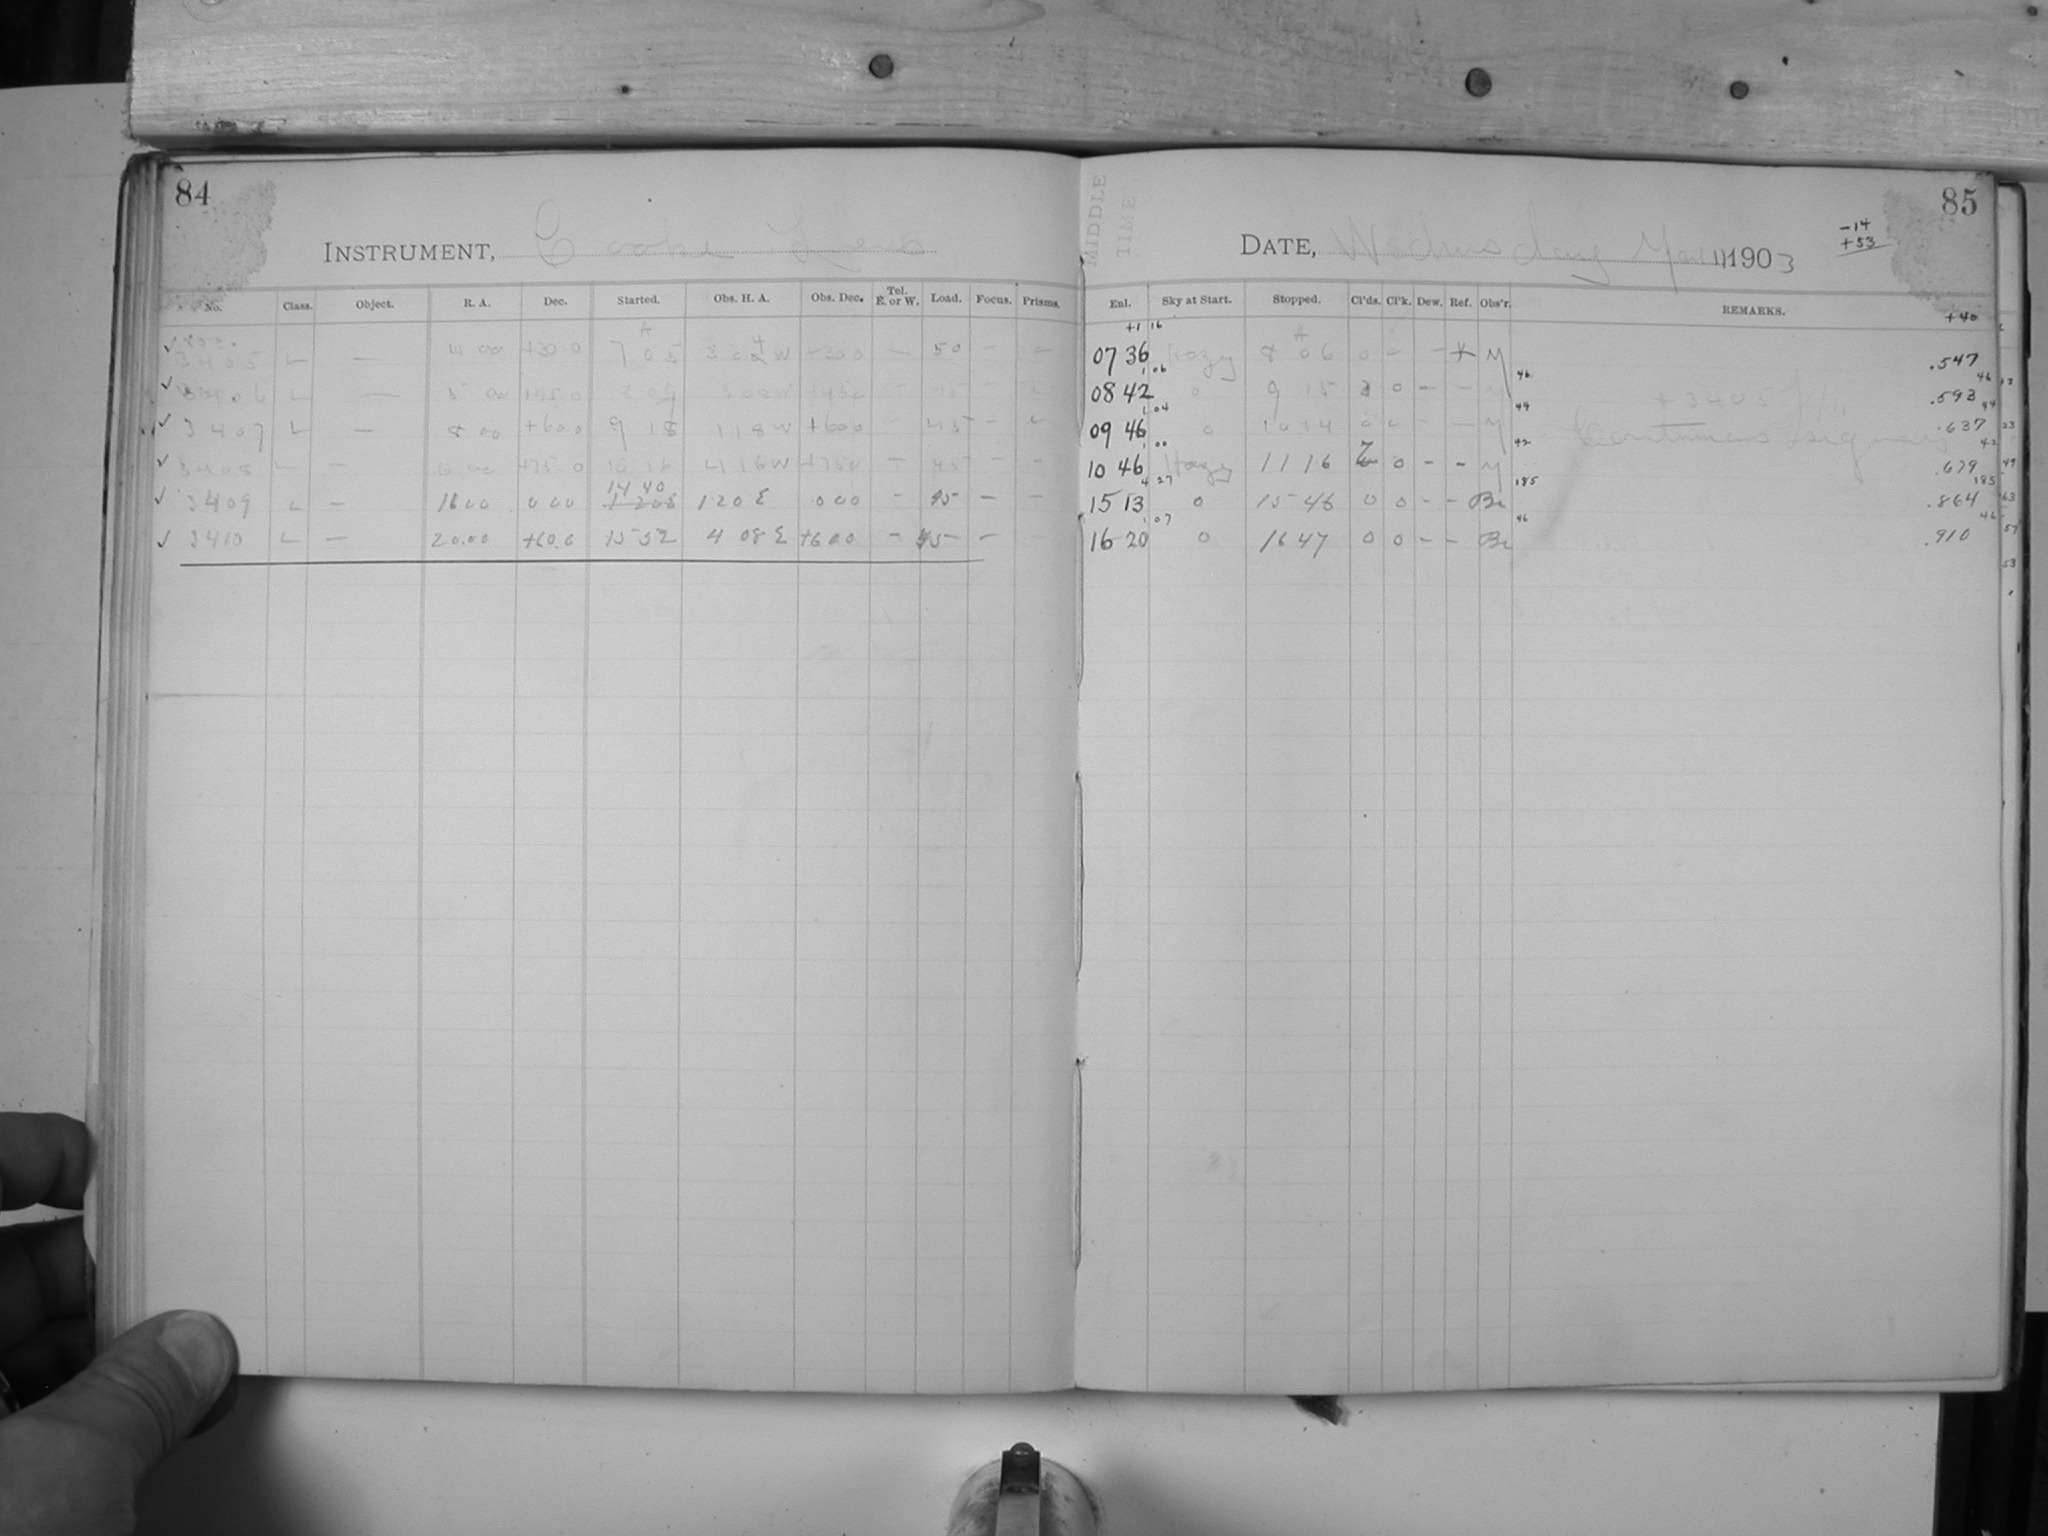 84
INSTRUMENT, Cooke Lens
No. Class. Object. R. A. Dec. Started. Obs. H. A. Obs. Dec. Tel. E. or W. Load. Focus. Prisms.
3405 L — 4 00 +30 0 7 05 W +30 0 — 50 — —
3406 L — 5 00 +45 0 W +45 0 — 45 — —
3407 L — 8 00 +60 0 9 18 1 18 W +60 0 — 45 — —
3408 L — 6 00 +75 0 10 16 4 16 W +75 0 — 45 — —
14 40
3409 L — 16 00 0 00 1 20 E 0 00 — 45 — —
3410 L — 20.00 +60.0 15 52 4 08 E +60 0 — 45 — —
85
MIDDLE
TIME
-14
+53
DATE, Wednesday Mar 11 1903
Enl. Sky at Start. Stopped. Cl'ds. Cl'k. Dew. Ref. Obs'r. REMARKS.
+1 16 +40
07 36 Hazy 8 06 0 0 — * M .547
1 06 46 46
08 42 0 9 15 3 0 — — M * 3405 .593
1 04 44 44
09 46 0 10 14 0 0 — — M Continuous .637
1 00 42 42
10 46 Hazy 11 16 0 — — M .679
4 27 185 185
15 13 0 15 46 0 0 — — Br .864
1 07 46 46
16 20 0 16 47 0 0 — — Br .910